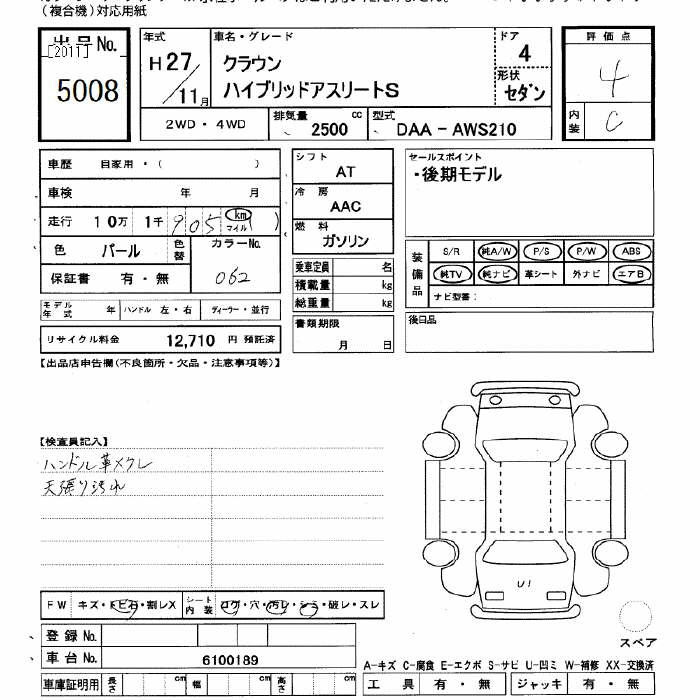 （複合機）対応用紙
出品No.
[2011]
5008
年式
H27/11月
車名・グレード
クラウン
ハイブリッドアスリートS
ドア
4
形状
セダン
評価点
4
内装
C
2WD・4WD
排気量
2500 cc
型式
DAA - AWS210
車歴 自家用・（ ）
車検 年 月
走行 10万 1千 905 km マイル ( )
色 パール 色替 カラーNo.
062
保証書 有・無
モデル年式 年 ハンドル 左・右 ディーラー・並行
リサイクル料金 12,710 円 預託済
シフト
AT
冷房
AAC
燃料
ガソリン
乗車定員 名
積載量 kg
総重量 kg
書類期限
月 日
セールスポイント
・後期モデル
装備品
S/R 純A/W P/S P/W ABS
純TV 純ナビ 革シート 外ナビ エアB
ナビ型番：
後日品
【出品店申告欄(不良箇所・欠品・注意事項等)】
【検査員記入】
ハンドル革メクレ
天張り汚れ
U1
FW キズ・トビ石・割レX シート内装 コゲ・穴・汚レ・シミ・破レ・スレ
登録No.
車台No. 6100189
車庫証明用 長さ cm 幅 cm 高さ cm
スペア
A-キズ C-腐食 E-エクボ S-サビ U-凹ミ W-補修 XX-交換済
工具 有・無 ジャッキ 有・無